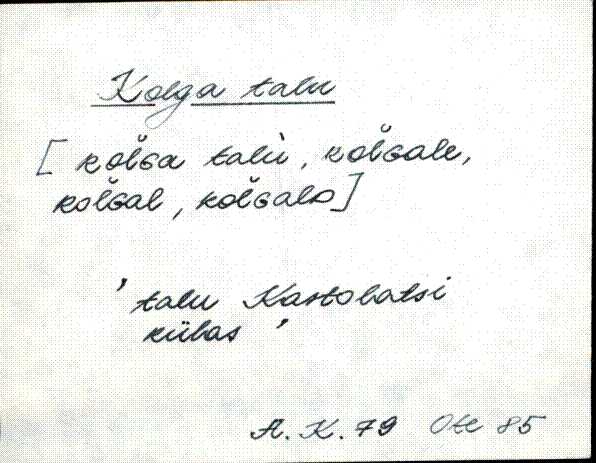 Kolga talu
[kol̆ɢa talu̬, kol̆ɢale,
kol̆ɢal, kol̆ɢalᴅ]
' talu Kastolatsi
külas '
A. K. 79 Ote 85